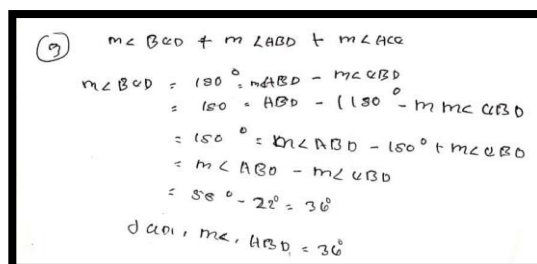 9 m∠ BCD + m ∠ABD + m∠ACQ
m∠BCD = 180° - m∠ABD - m∠CBD
= 180 - ABD - (180° - m m∠ CBD
= 180° = m∠ABD - 180° + m∠CBD
= m∠ ABD - m∠CBD
= 58° - 22° = 36°
Jadi, m∠, ABD, = 36°